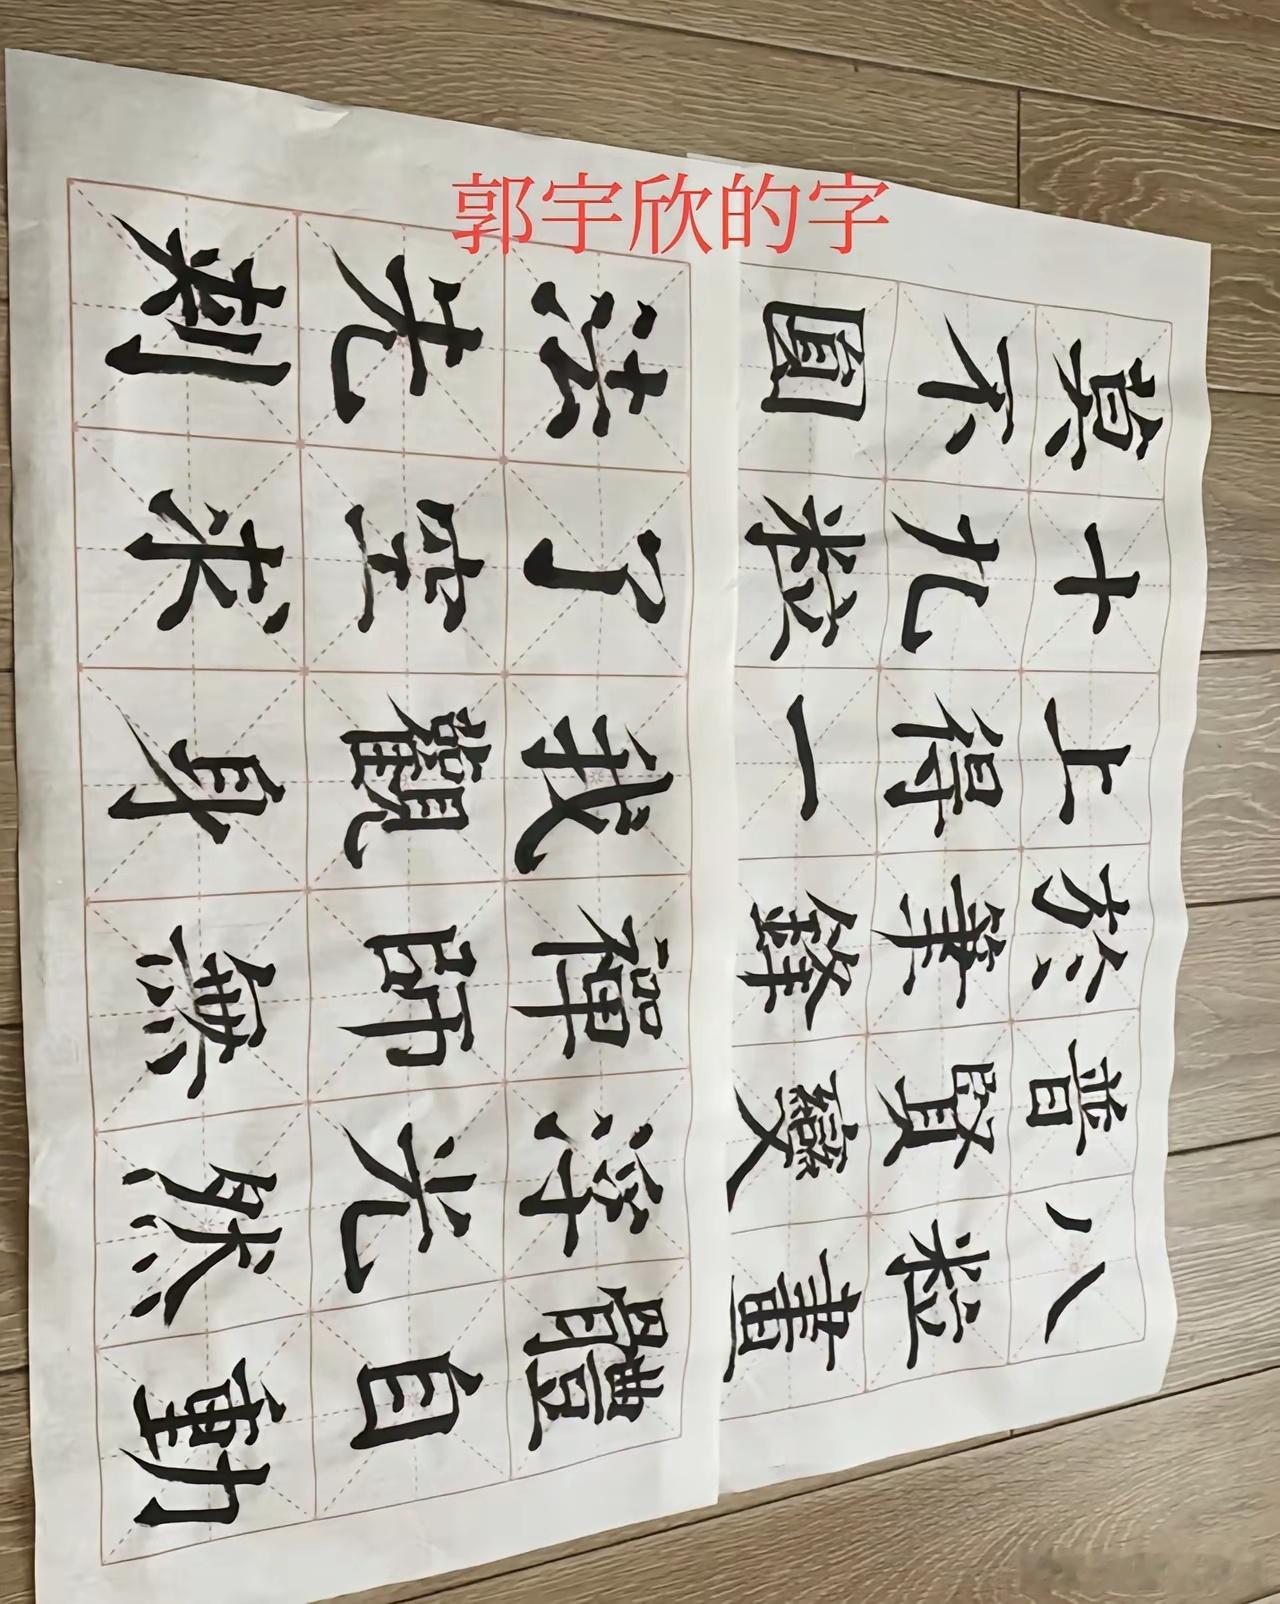 郭宇欣的字
八粒畫
普賢變
於筆鋒
上得一
十九粒
莫不圓
體自動
浮光然
禪師無
我觀身
了空求
法先刺